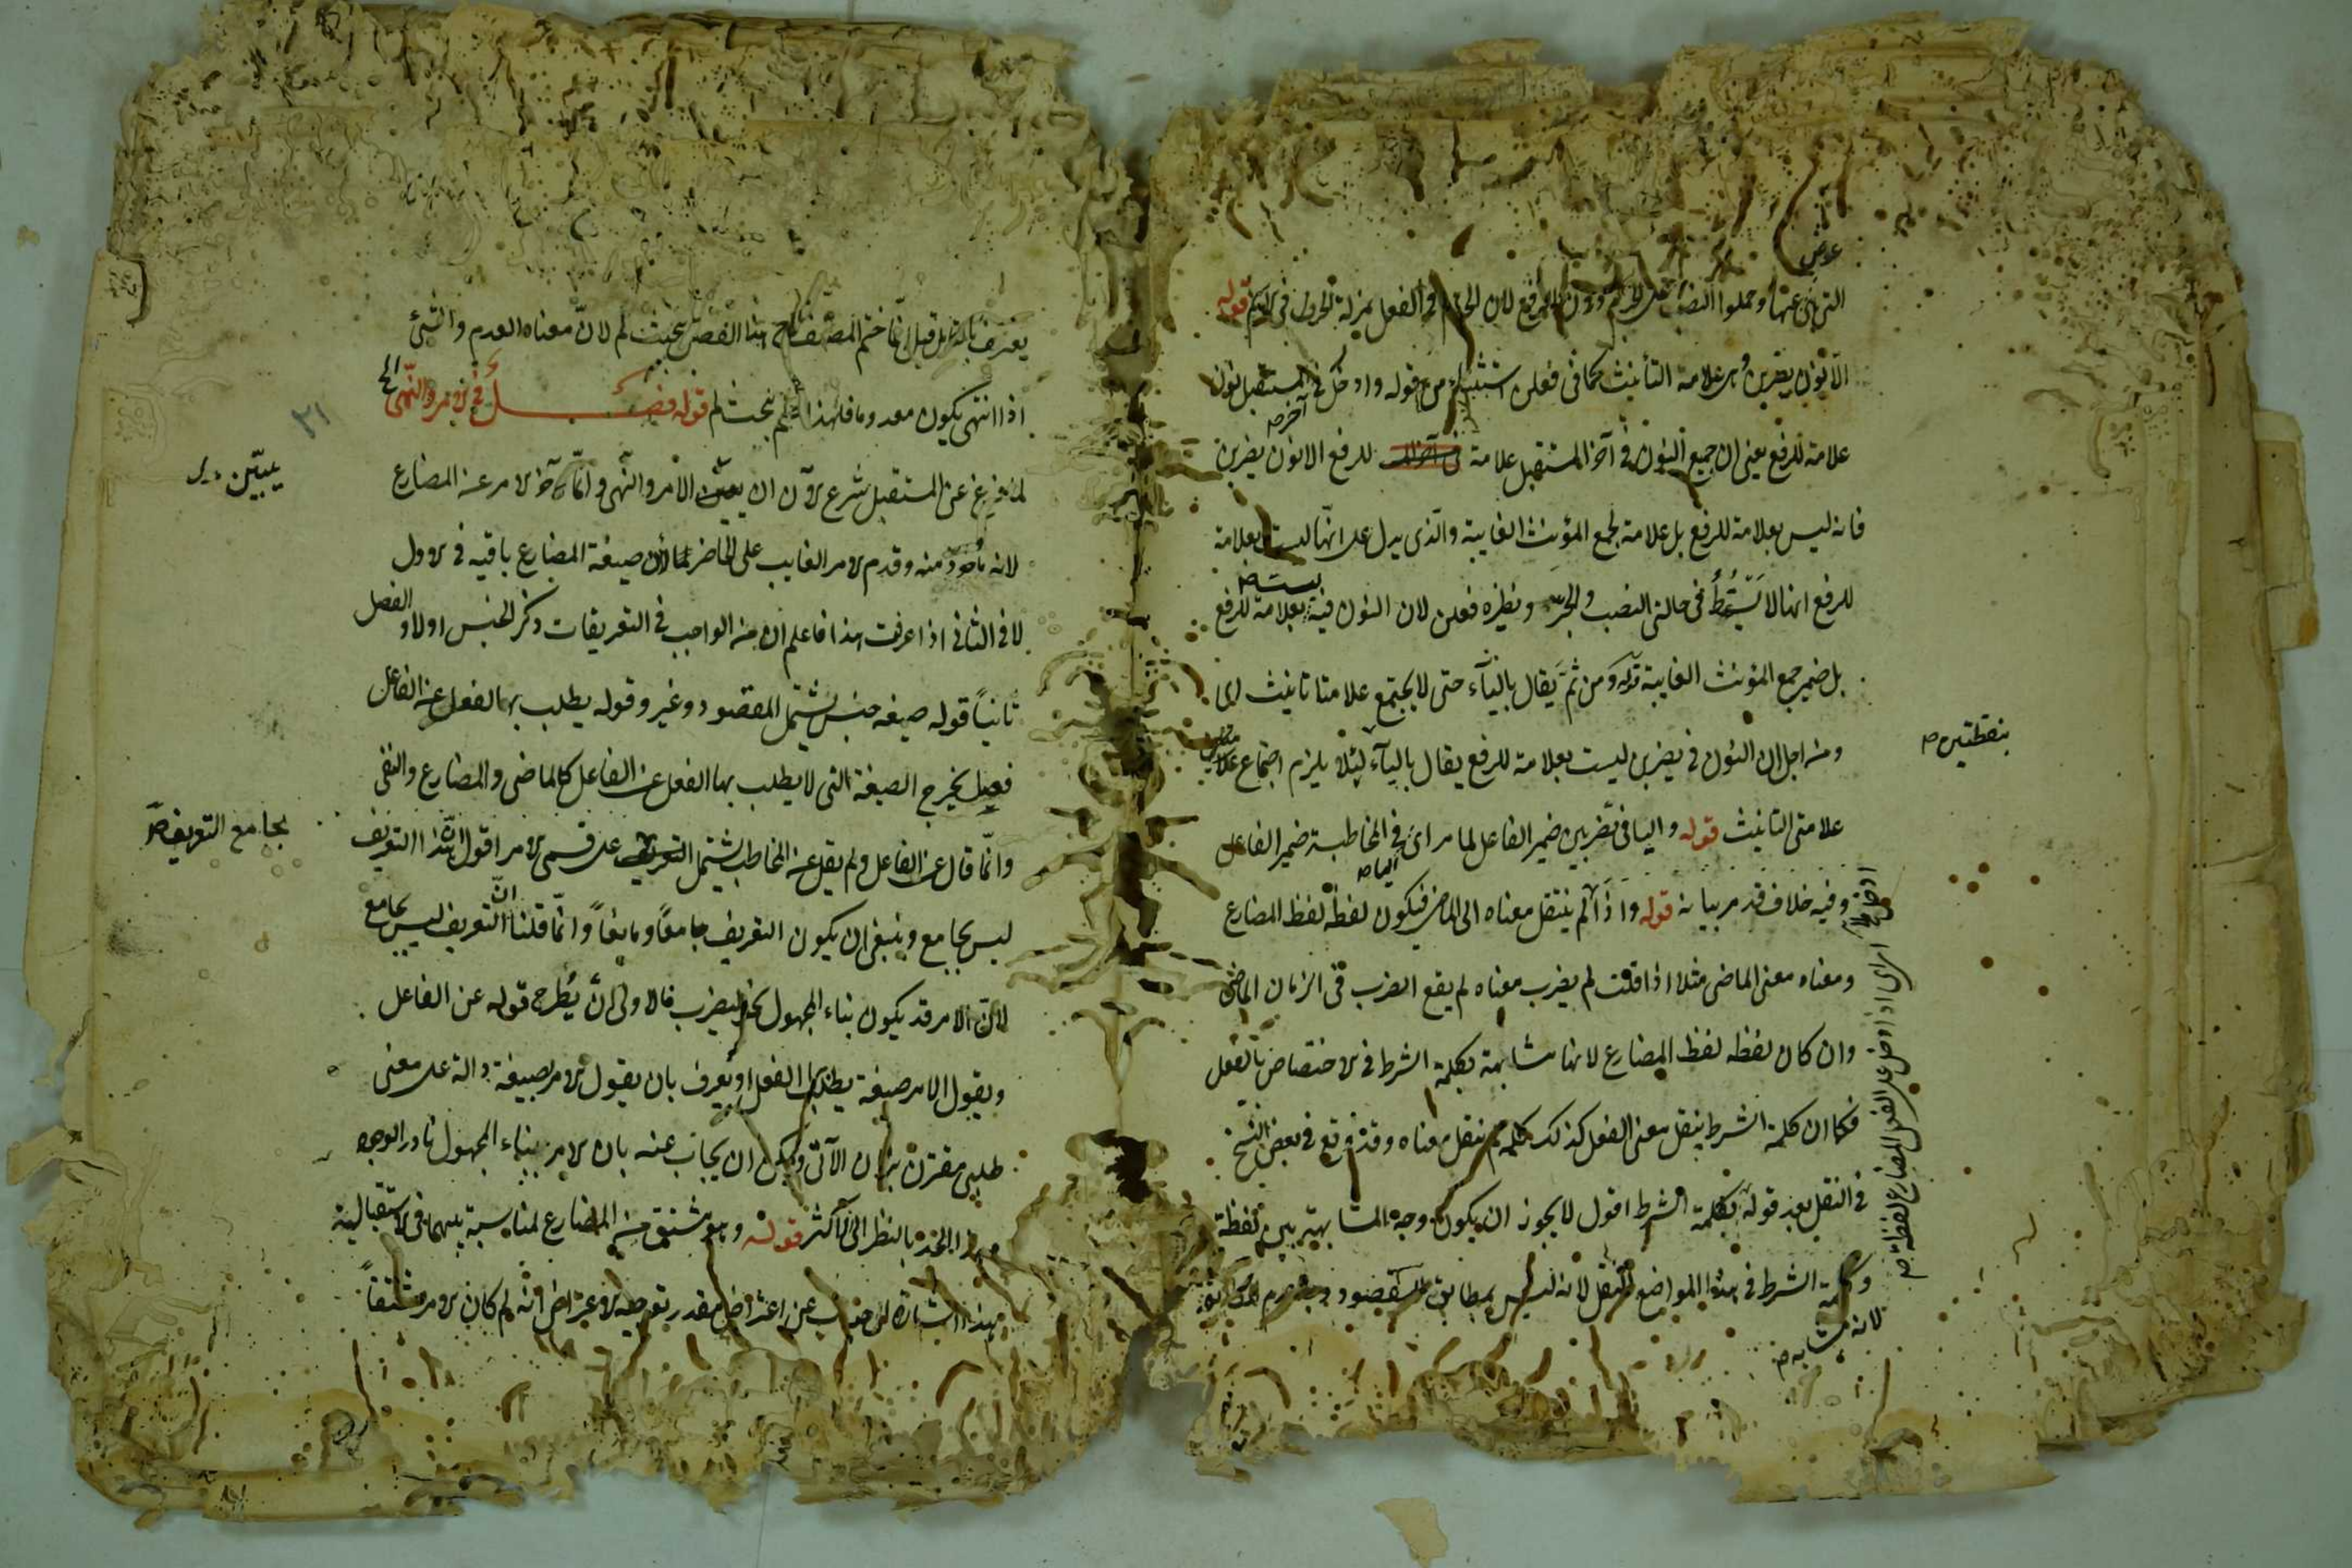 عوض
التي هي عنها وحملوا النصب على الجزم دون الرفع لان الجزم في الفعل بمنزلة الجر في الاسم قوله
الا نون يضربن وهي علامة التأنيث كما في فعلن استثناء من قوله وادخل في المستقبل نون
علامة للرفع يعني ان جميع النون في آخر المستقبل علامة للرفع الا نون يضربن
آخره
فانه ليس بعلامة للرفع بل علامة لجمع المؤنث الغايبة والذي يدل على انها ليست بعلامة
للرفع انها لا تسقط في حالتي النصب والجزم ونظيره فعلن لان النون فيه ليست بعلامة للرفع
بل ضمير جمع المؤنث الغايبة قوله ومن ثم يقال بالياء حتى لا يجتمع علامتا تانيث اى
ومن اجل ان النون في يضربن ليست بعلامة للرفع يقال بالياء لئلا يلزم اجتماع
بنقطتين صح
علامتي التانيث قوله واليا في تضربين ضمير الفاعل لما مر اى في المخاطبة ضمير الفاعل
الياء صح
وفيه خلاف قد مر بيانه قوله واذا لم ينتقل معناه الى الماضي فيكون لفظه لفظ المضارع
ومعناه معنى الماضي مثلا اذا قلت لم يضرب معناه لم يقع الضرب في الزمان الماضي
وان كان لفظه لفظ المضارع لانها مشابهة بكلمة الشرط في الاختصاص بالفعل
فكما ان كلمة الشرط ينقل معنى الفعل كذلك كلمة لم ينقل معناه وقد وقع في بعض النسخ
في النقل بعد قوله بكلمة الشرط اقول لا يجوز ان يكون وجه المشابهة بين لفظة
وكلمة الشرط في هذا المواضع النقل لانه ليس بمطابق للمقصود
لانه مشابه صح
اى اذا دخل على الفعل المضارع لفظة صح
يعترف قيل انما ختم المصنف هذا الفصل ببحث لم لان معناه العدم والشئ
اذا انتهى يكون معدوما فلهذا ختم ببحث لم قوله فصل في الامر والنهى الخ
٢١
لما فرغ عن المستقبل شرع الآن ان يبين الامر والنهى وانما اخر الامر عن المضارع
يبين
لانه ماخوذ منه وقدم الامر الغايب على الحاضر لان صيغة المضارع باقيه في الاول
لا في الثاني اذا عرفت هذا فاعلم ان من الواجب في التعريفات ذكر الجنس اولا والفصل
ثانياً قوله صيغه جنس يشتمل المقصود وغيره وقوله يطلب بها الفعل عن الفاعل
فصل يخرج الصيغة التى لا يطلب بها الفعل عن الفاعل كالماضى والمضارع والنفى
وانما قال عن الفاعل ولم يقل عن المخاطب ليشتمل التعريف على قسمى الامر اقول هذا التعريف
بجامع التعريف صح
ليس بجامع وينبغى ان يكون التعريف جامعاً ومانعاً وانما قلنا ان التعريف ليس بجامع
لان الامر قد يكون بناء المجهول نحو ليضرب فالاولى ان يطرح قوله عن الفاعل
ويقول الامر صيغة يطلب بها الفعل او يعرف بان يقول الامر صيغة دالة على معنى
طلبى مقترن بزمان الآتى ويمكن ان يجاب عنه بان الامر ببناء المجهول نادر الوجود
وهذا الحد بالنظر الى الاكثر قوله وهو مشتق من المضارع لمناسبة بينهما فى الاستقبالية
هذا اشارة الى جواب عن اعتراض مقدر تقريره الاعتراض انه لم كان الامر مشتقاً